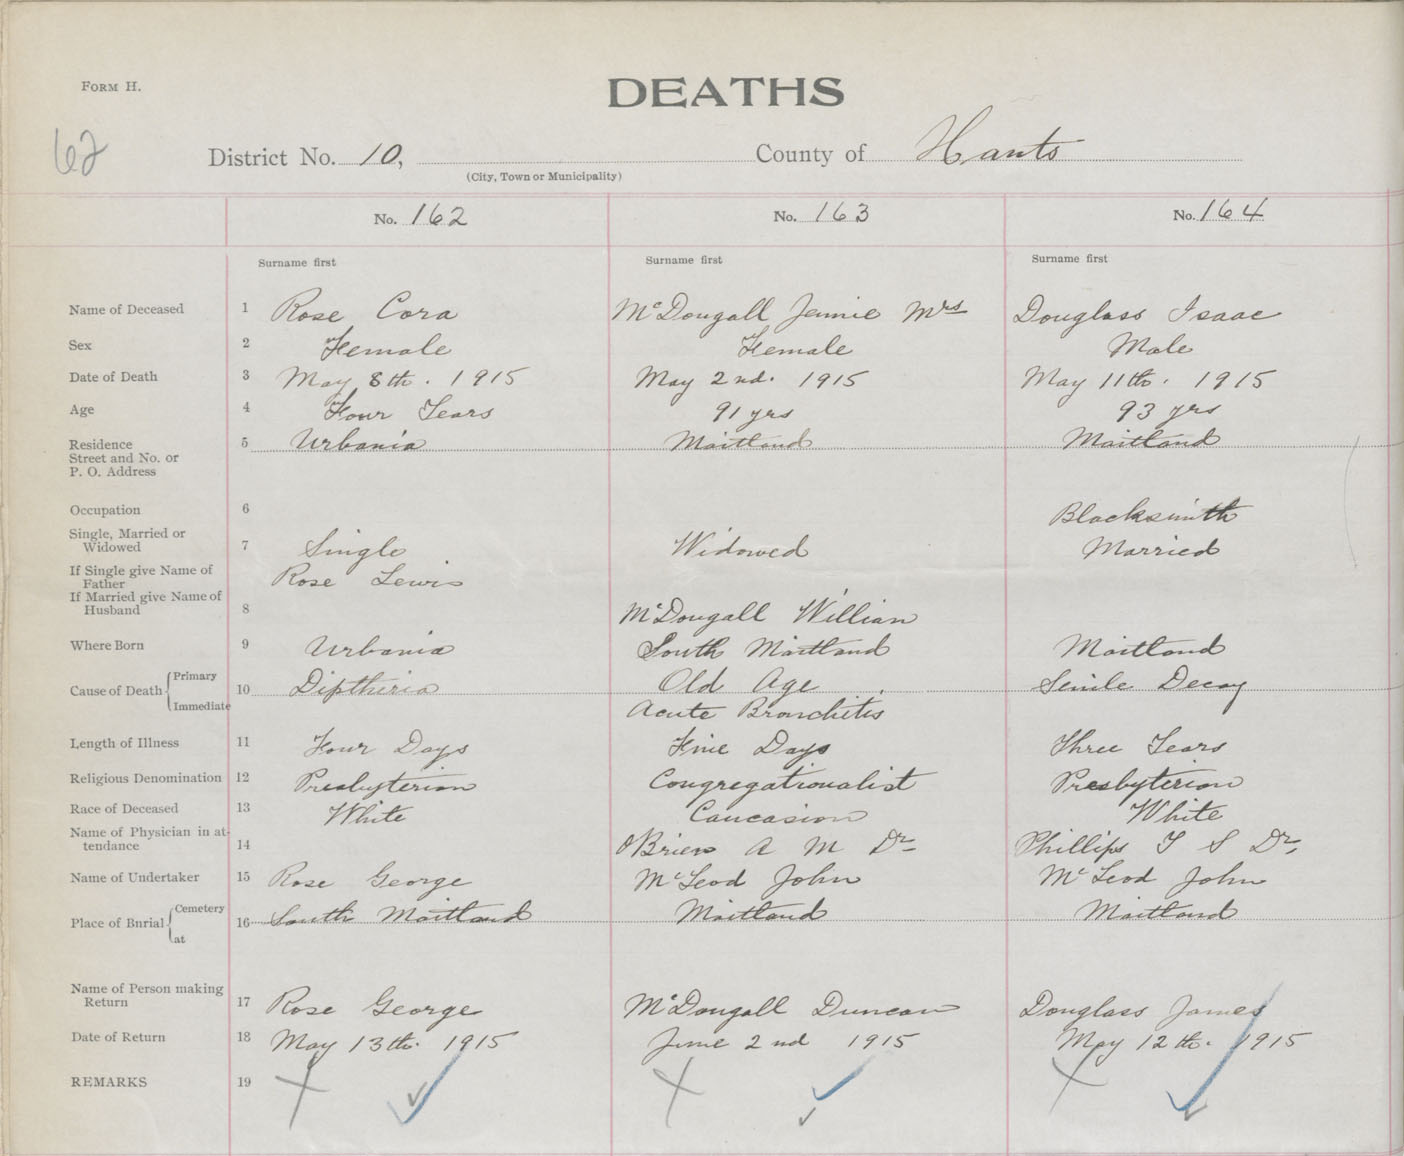 Form H.
DEATHS
62
District No. 10,
County of Hants
(City, Town or Municipality)
No. 162 No. 163 No. 164
Surname first Surname first Surname first
Name of Deceased 1 Rose Cora McDougall Jennie Mrs Douglass Isaac
Sex 2 Female Female Male
Date of Death 3 May 8th. 1915 May 2nd. 1915 May 11th. 1915
Age 4 Four Years 91 yrs 93 yrs
Residence 5 Urbania Maitland Maitland
Street and No. or
P. O. Address
Occupation 6 Blacksmith
Single, Married or
Widowed 7 Single Widowed Married
If Single give Name of
Father Rose Lewis
If Married give Name of
Husband 8 McDougall William
Where Born 9 Urbania South Maitland Maitland
Cause of Death Primary 10 Diptheria Old Age Senile Decay
Immediate Acute Bronchitis
Length of Illness 11 Four Days Five Days Three Years
Religious Denomination 12 Presbyterian Congregationalist Presbyterian
Race of Deceased 13 White Caucasion White
Name of Physician in at-
tendance 14 O'Brien A M Dr- Phillips T S Dr,
Name of Undertaker 15 Rose George McLeod John McLeod John
Place of Burial Cemetery 16 South Maitland Maitland Maitland
at
Name of Person making
Return 17 Rose George McDougall Duncan Douglass James
Date of Return 18 May 13th. 1915 June 2nd 1915 May 12th. 1915
REMARKS 19